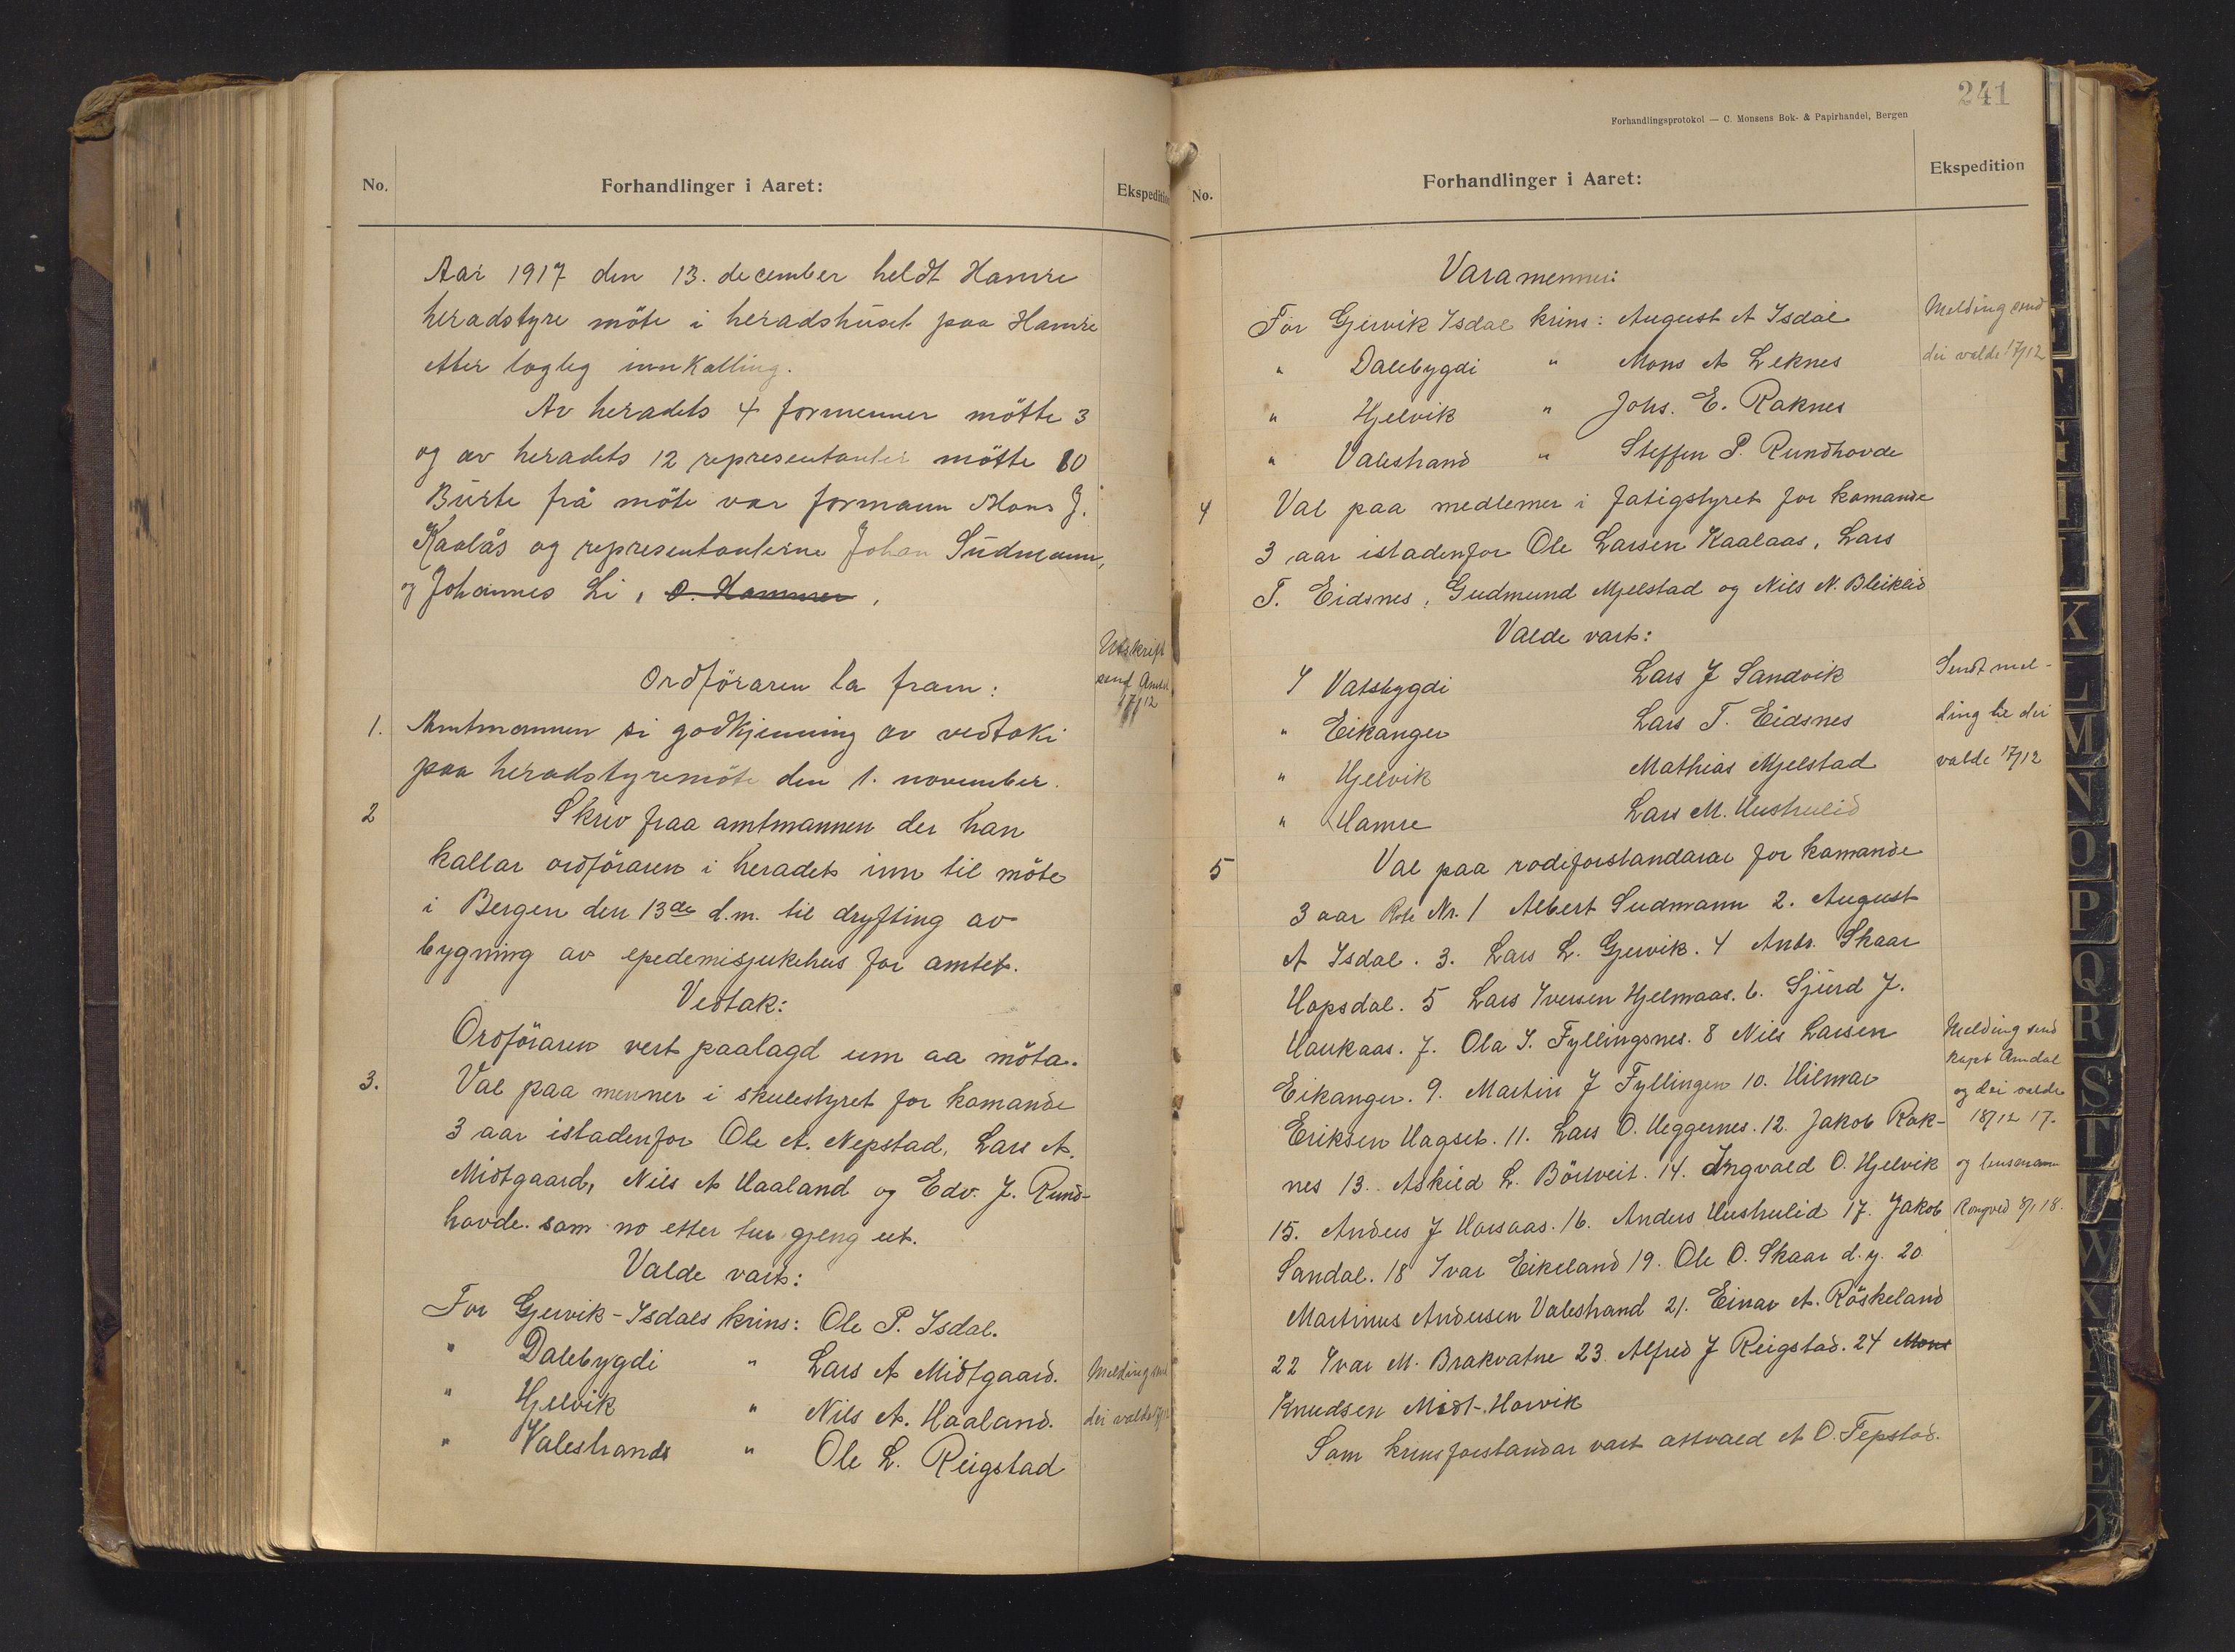 No.
Forhandlinger i Aaret:
Ekspedition
Aar 1917 den 13. december heldt Hamre
heradstyre möte i heradshuset paa Hamre
etter logleg innkalling.
Av heradets 4 formenner mötte 3
og av heradets 12 representanter mötte 10
Burte frå möte var formann Mons J.
Kaalås og representanterne Johan Sudmann,
og Johannes Li, O. Hammer,
Ordföraren la fram:
Utskrift
send Amtm.
17/12
1. Amtmannen si godkjenning av vedtaki
paa heradstyremöte den 1. november.
2 Skriv fraa amtmannen der han
kallar ordföraren i heradets inn til möte
i Bergen den 13de d.m. til dryfting av
bygning av epedemisjukehus for amtet.
Vedtak:
Ordföraren vert paalagd um aa möta.
3. Val paa menner i skulestyret for komande
3 aar istadenfor Ole A. Nepstad, Lars A.
Midtgaard, Nils A Haaland og Edv. J. Rund-
hovde. som no etter tur gjeng ut.
Valde vart:
For Gjervik-Isdals krins: Ole P. Isdal.
" Dalebygdi " Lars A Midtgaard.
" Hjelvik " Nils A. Haaland.
" Valestrands " Ole L. Reigstad
Melding send
dei valde 17/12
241
Forhandlingsprotokol — C. Monsens Bok- & Papirhandel, Bergen
No.
Forhandlinger i Aaret:
Ekspedition
Varamenner:
For Gjervik Isdal krins: August A Isdal
" Dalebygdi " Mons A Leknes
" Hjelvik " Johs. E. Raknes
" Valestrand " Steffen P. Rundhovde
Melding send
dei valde 17/12
4 Val paa medlemer i fatigstyret for komande
3 aar istadenfor Ole Larsen Kaalaas, Lars
T. Eidsnes, Gudmund Mjelstad og Nils N. Bleiklid
Valde vart:
I Vatsbygdi Lars J Sandvik
" Eikanger Lars T. Eidsnes
" Hjelvik Mathias Mjelstad
" Hamre Lars M. Hushulid
Sendt mel-
ding til dei
valde 17/12
5 Val paa rodeforstandarar for komande
3 aar Rote Nr. 1 Albert Sudmann 2. August
A Isdal. 3. Lars L. Gjervik. 4 Andr. Skaar
Hopsdal. 5 Lars Iversen Hjelmaas. 6. Sjurd J.
Haukaas. 7. Ola I. Fyllingsnes. 8 Nils Larsen
Eikanger. 9. Martin J Fyllingen 10. Hilmar
Eriksen Hagset. 11. Lars O. Heggernes. 12. Jakob Rak-
nes 13. Askild L. Börtveit. 14. Ingvald O. Hjelvik
15. Anders J Horsaas. 16. Anders Hushulid 17. Jakob
Sandal. 18 Ivar Eikeland 19. Ole O. Skaar d.y. 20
Martinus Andersen Valestrand 21. Einar A. Röskeland
22 Ivar M. Brakvatne 23. Alfred J Reigstad. 24 Mons
Knudsen Midt-Horvik
Som krinsforstandar vart attvald A O. Tepstad.
Melding send
kapt Amdal
og dei valde
18/12 17.
og lensmann
Rongved 8/1 18.
K
L
M
N
O
P
Q
R
S
T
U
W
X
Y
Z
Æ
Ø